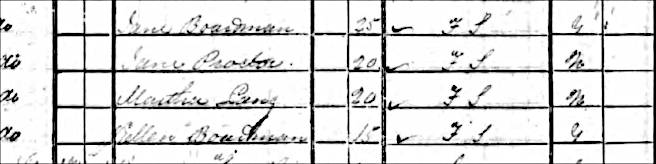 do Jane Boardman 25 ✓ F S Y
do Jane Proctor 20 ✓ F S N
do Martha Lang 20 ✓ F S N
do Ellen Boardman 15 ✓ F S Y